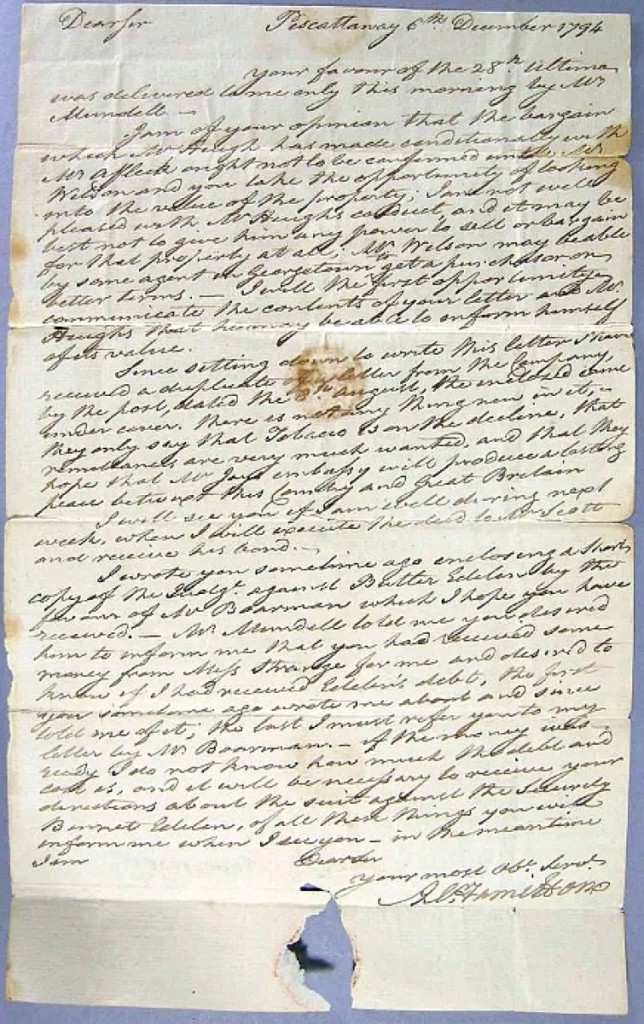 Dear Sir Piscattaway 6th. December 1794
your favour of the 28th. Ultimo
was delivered to me only this morning by Mr
Mundell —
I am of your opinion that the bargain
which Mr Hugh has made conditionaly with
Mr Affleck ought not to be confirmed untill Mr
Wilson and you take the opportunity of looking
into the value of the property; I am not well
pleased with Mr Hughs conduct, and it may be
best not to give him any power to sell or bargain
for that property at all, Mr Wilson may be able
by some agent in Georgetown to get a purchaser on
better terms. — I will the first opportunity
communicate the contents of your letter and Mr.
Hughs that he may be able to inform himself
of its value.
Since sitting down to write this letter I have
received a duplicate of a letter from the Company
by the post, dated the August, the enclosed came
under cover. There is not any thing new in it,
they only say that Tobacco is on the decline, that
remittances are very much wanted, and that they
hope that Mr Jays embassy will produce a lasting
peace betwixt this Country and Great Britain
I will see you if I am well during next
week, when I will execute the deed to Mr Scott
and receive his bond. —
I wrote you sometime ago enclosing a short
copy of the Judgt. against Butler Edelen by the
favour of Mr Boarman which I hope you have
received. — Mr. Mundell told me you desired
him to inform me that you had received some
money from Mess Strange for me and desired to
know if I had received Edelen's debt, the first
you sometime ago wrote me about and since
told me of it; the last I must refer you to my
letter by Mr Boarman. — if the money was
ready I do not know how much the debt and
cost is, and it will be necessary to receive your
directions about the suit against the Security
Bennet Edelen, of all these things you will
inform me when I see you — in the meantime
I am Dear Sir
your most Obt. Servt.
Al. Hamilton